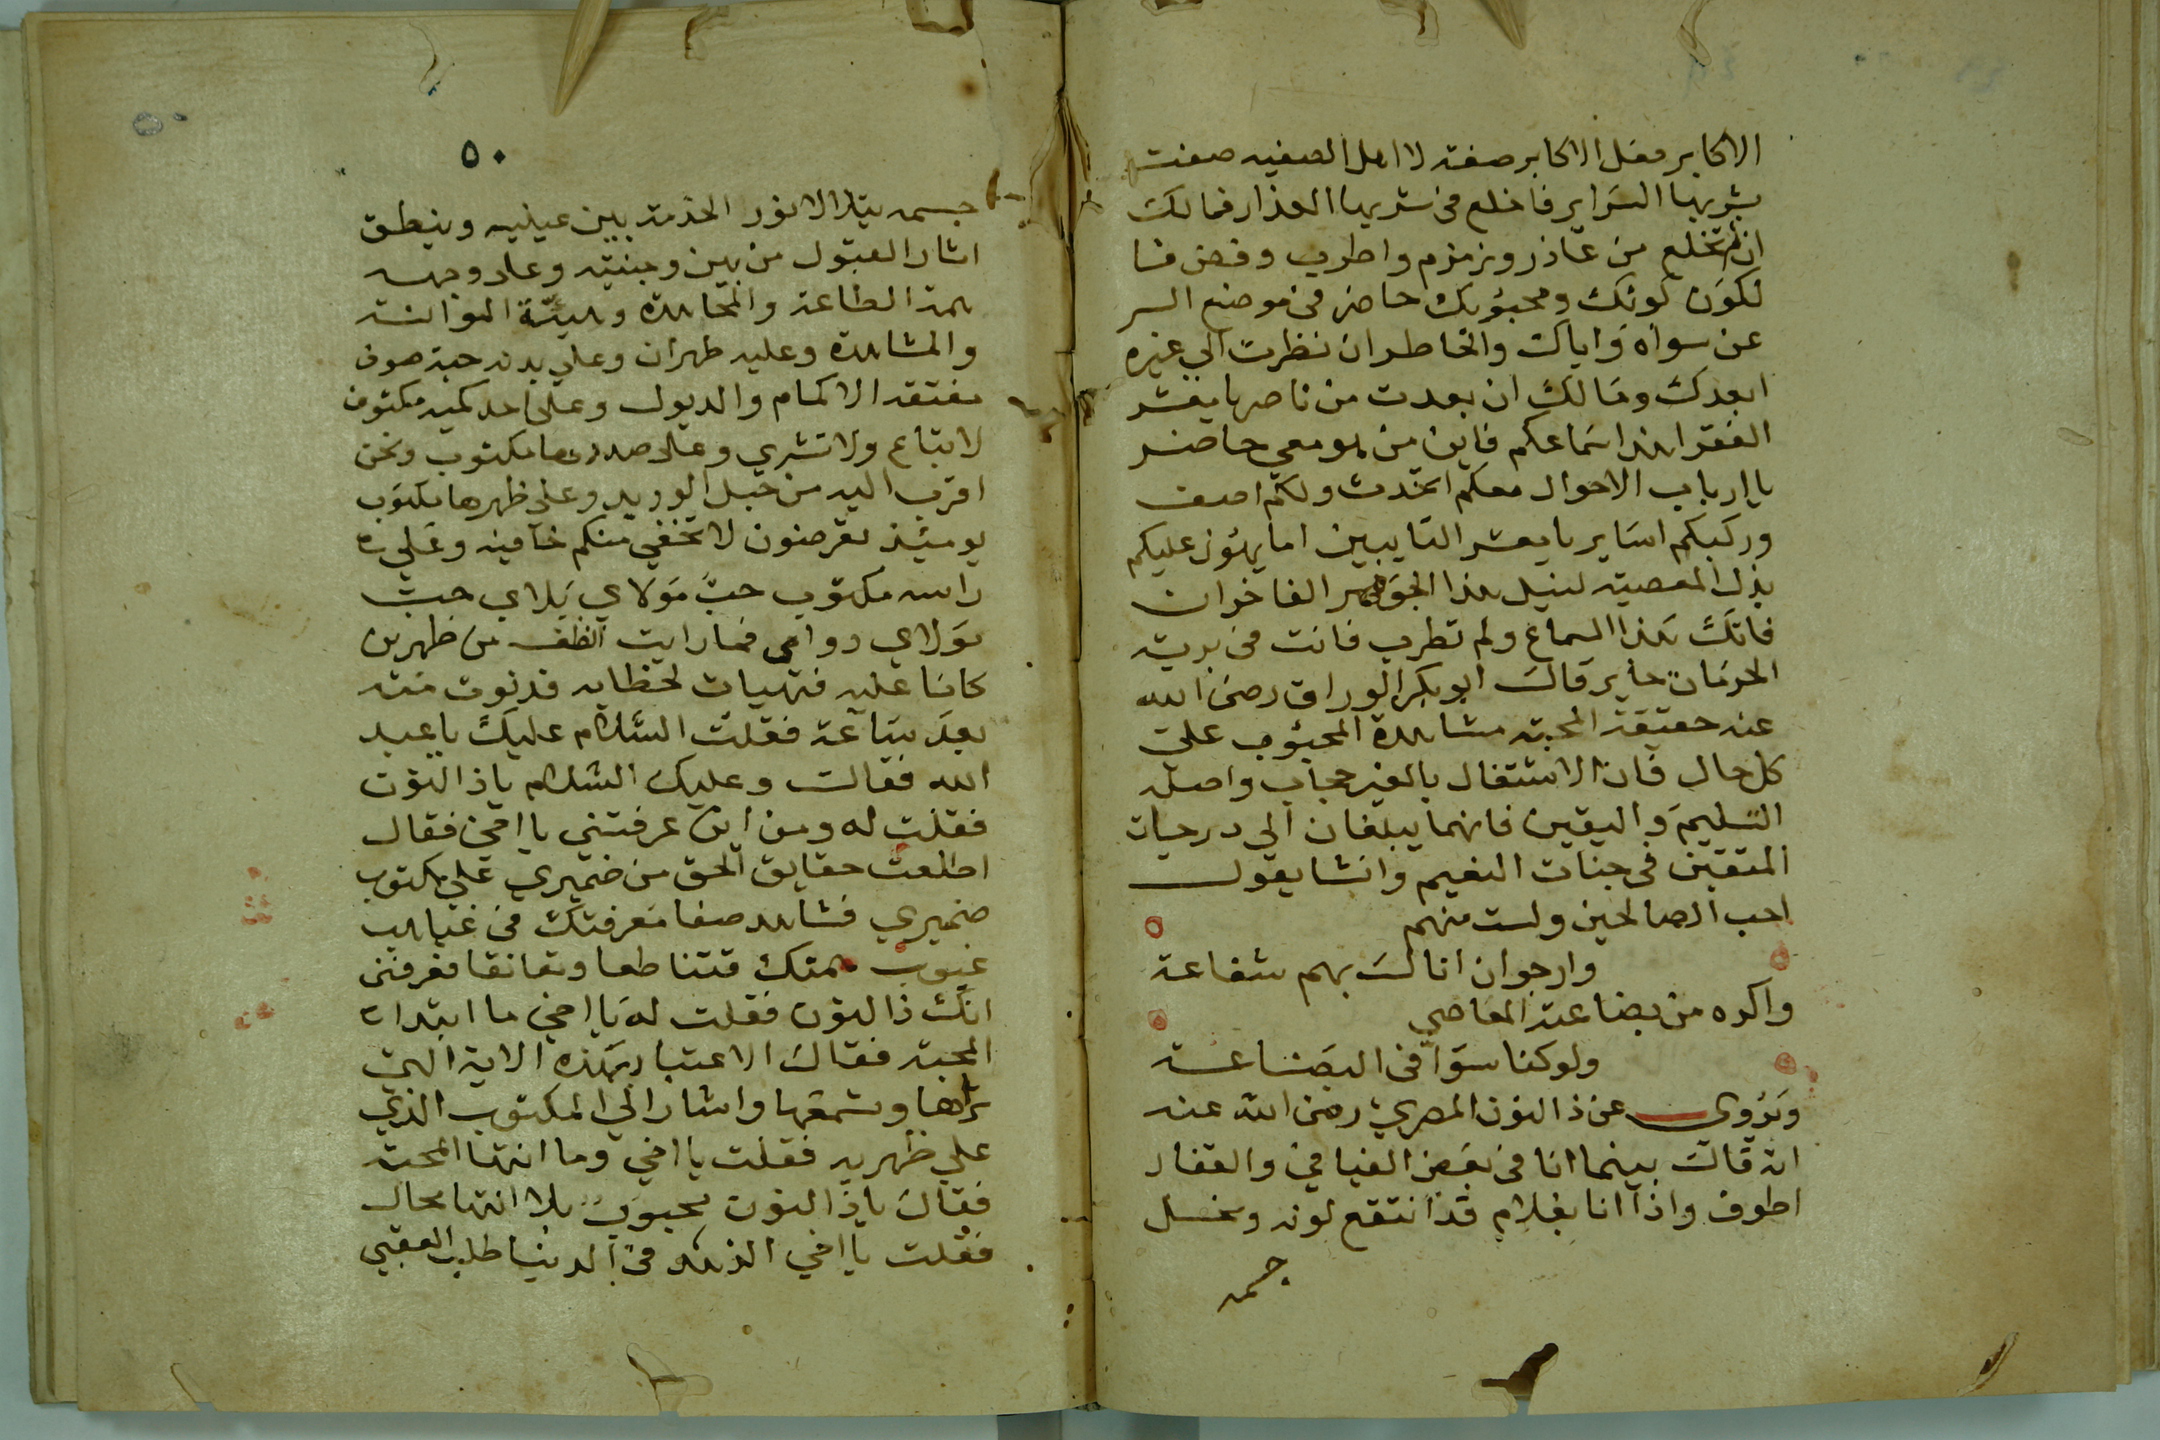 الاكابر فعل الاكابر صفة لا اهل الصفيه صفت
بشربها السراير فاخلع في شربها العذار فمالك
ان لم تخلع من عاذر وزمزم واطرب وفض فنا
لكون كونك ومحبوبك حاضر في موضع السر
عن سواه واياك والخاطر ان نظرت الي غيره
ابعدك ومالك ان بعدت من ناصر يا معشر
الفقرا هذا سماعكم فاين من هو معي حاضر
يا ارباب الاحوال معكم اتحدث ولكم اصف
وركبكم اساير يا معشر التايبين اما يهون عليكم
بذل المعصيه لنيل هذا الجوهر الفاخر ان
فاتك هذا السماع ولم تطرب فانت في برية
الحرمان حاير قال ابو بكر الوراق رضي الله
عنه حقيقة المحبه مشاهدة المحبوب علي
كل حال فان الاشتغال بالغير حجاب واصله
التسليم و اليقين فانهما يبلغان الي درجات
المتقين في جنات النعيم وانشا يقول
احب الصالحين ولست منهم
وارجوا ان انال بهم شفاعة
واكره من بضاعته المعاصي
ولو كنا سوآ في البضاعة
وروي عن ذا النون المصري رضي الله عنه
انه قال بينما انا في بعض الفيافي والقفار
اطوف واذا انا بغلام قد انتقع لونه ونحل
جسمه
٥٠
جسمه يتلالا نور الخدمة بين عينيه وينطق
اثار القبول من بين وجنتيه وعلا وجهه
بهمة الطاعة والمجاهدة وهيئة الموانسة
والمشاهدة وعليه طمران وعلي بدنه جبة صوف
مفتقة الاكمام والديول وعلي احد كميه مكتوب
لا تباع ولا تشري وعلي صدرها مكتوب ونحن
اقرب اليه من حبل الوريد وعلي ظهرها مكتوب
يوميئذ تعرضون لا تخفي منكم خافيه وعلي
راسه مكتوب حب مولاي بلاي حب
مولاي دوائي فما رايت انظف من طمرين
كانا عليه فتهيات لخطابه فدنوت منه
بعد ساعة فقلت السلام عليك يا عبد
الله فقال وعليك السلام يا ذا النون
فقلت له ومن اين عرفتني يا اخي فقال
اطلعت حقايق الحق من ضميري علي مكتوب
ضميري فشاهد صفا معرفتك في غياهب
غيوب همتك فتناطقا وتعانقا فعرفني
انك ذا النون فقلت له يا اخي ما ابتداء
المحبة فقال الاعتبار بهذه الاية التي
تراها وتسمعها واشار الي المكتوب الذي
علي ظهريه فقلت يا اخي وما انتها المحبة
فقال يا ذا النون محبوب بلا انتها محال
فقلت يا اخي الزهد في الدنيا طلب العقبي